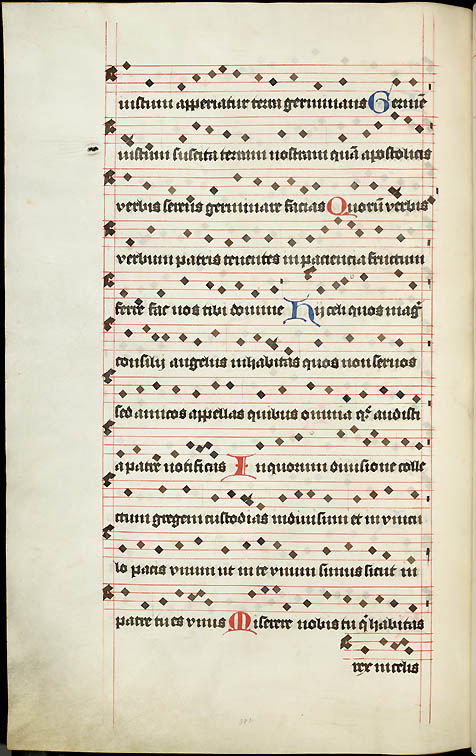 iustum apperiatur terra germinans Germē
iustum suscita terram nostram quā apostolicis
verbis serens germinare facias Quorū verbis
verbum patris tenentes in paciencia fructum
ferre fac nos tibi domine Hij celi quos mag
consilij angelus inhabitas quos non seruos
sed amicos appellas quibus omnia q audisti
a patre notificas In quorum diuisione colle
ctum gregem custodias indiuisum et in vincu
lo pacis vnum ut in te vnum simus sicut in
patre tu es vnus Miserere nobis tu q̇ habitas
rex in celis